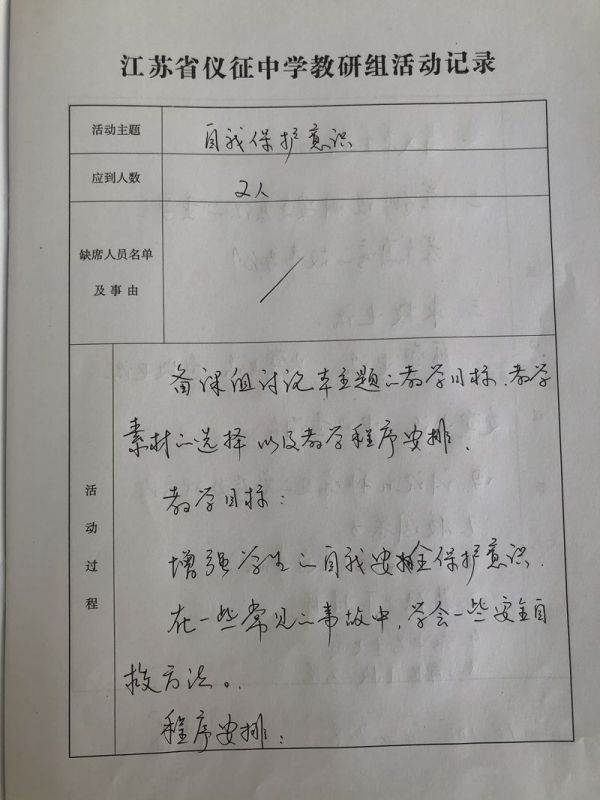 江苏省仪征中学教研组活动记录
活动主题
自我保护意识
应到人数
2人
缺席人员名单
及事由
活动过程
备课组讨论本主题之教学目标、教学
素材之选择以及教学程序安排.
教学目标:
增强学生之自我安全保护意识.
在一些常见之事故中,学会一些安全自
救方法。
程序安排: